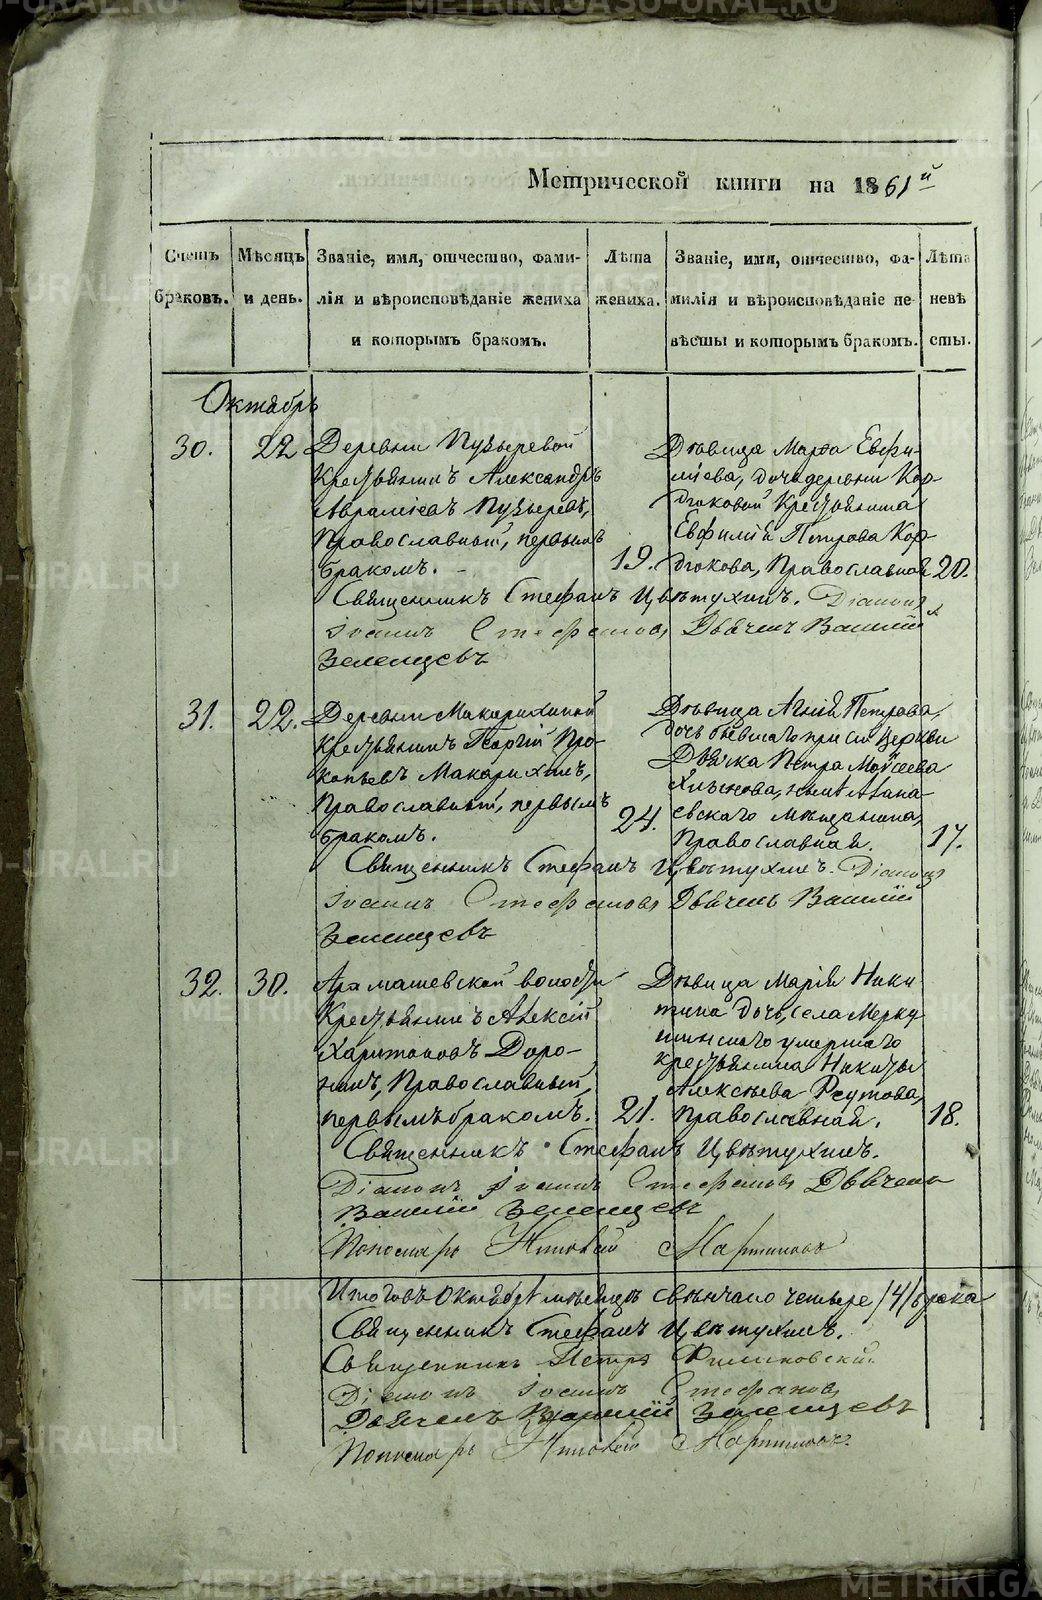 METRIKI.GASO-URAL.RU
Метрической книги на 1861й
Счетъ браковъ.
Мѣсяцъ и день.
Званіе, имя, отчество, фами-
лія и вѣроисповѣданіе жениха
и которымъ бракомъ.
Лѣта жениха.
Званіе, имя, отчество, фа-
милія и вѣроисповѣданіе не-
вѣсты и которымъ бракомъ.
Лѣта невѣ
сты.
Октябрь
30. 22
Деревни Пузыревой
Крестьянинъ Александръ
Аврамиевъ Пузыревъ,
Православный, первымъ
бракомъ.
19.
Дѣвица Марѳа Евфи-
міева, дочь деревни Кор-
дюковой Крестьянина
Евфимія Петрова Кор-
дюкова, Православная
20.
Священникъ Стефанъ Цвѣтухинъ. Діаконъ
Іоаннъ Стефановъ Дьячекъ Василій
Зеленцевъ
31. 22.
Деревни Макарихиной
Крестьянинъ Георгій Про-
копьевъ Макарихинъ,
Православный, первымъ
бракомъ.
24.
Дѣвица Агнія Петрова,
дочь бывшаго при сей Церкви
Дьячка Петра Моѵсеева
нынѣ
мѣщанина,
Православная.
17.
Священникъ Стефанъ Цвѣтухинъ. Діаконъ
Іоаннъ Стефановъ Дьячекъ Василій
Зеленцевъ
32. 30.
Арамашевской волости
Крестьянинъ Алексій
Харитоновъ Доро-
нинъ, Православный,
первымъ бракомъ.
21.
Дѣвица Марія Ники
тина дочь, села Мерку
шинскаго умершаго
крестьянина Никиты
Алексѣева Реутова,
Православная.
18.
Священникъ Стефанъ Цвѣтухинъ.
Діаконъ Іоаннъ Стефановъ Дьячекъ
Василій Зеленцевъ
Пономарь Мартиновъ
Итого въ Октябрѣ мѣсяцѣ свѣнчано четыре /4/ брака
Священникъ Стефанъ Цвѣтухинъ.
Священникъ Петръ
Діаконъ Іоаннъ Стефановъ
Дьячекъ Василій Зеленцевъ
Пономарь Мартиновъ.